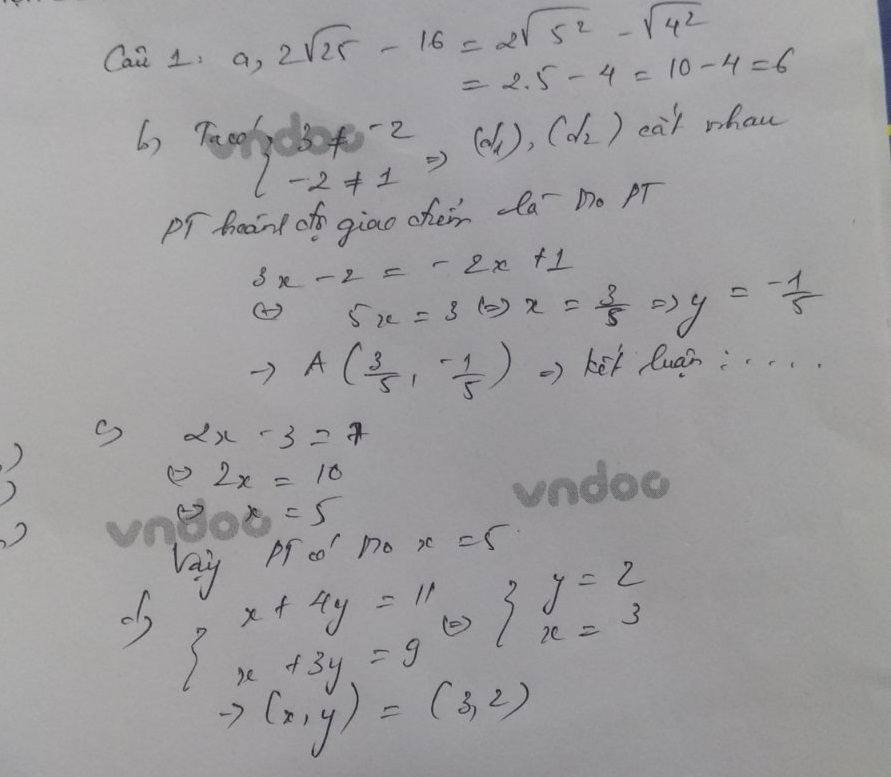 Câu 1: a, 2√25 - 16 = 2√5² - √4²
= 2.5 - 4 = 10 - 4 = 6
b, Ta có { 3 ≠ -2
-2 ≠ 1 => (d1), (d2) cắt nhau
PT hoành độ giao điểm là no PT
3x - 2 = -2x + 1
<=> 5x = 3 <=> x = 3/5 => y = -1/5
-> A (3/5, -1/5) => kết luận : ....
c, 2x - 3 = 7
<=> 2x = 10
<=> x = 5
Vậy PT có no x = 5
d, { x + 4y = 11
x + 3y = 9 <=> { y = 2
x = 3
-> (x, y) = (3, 2)
vndoc
vndoc
vndoc